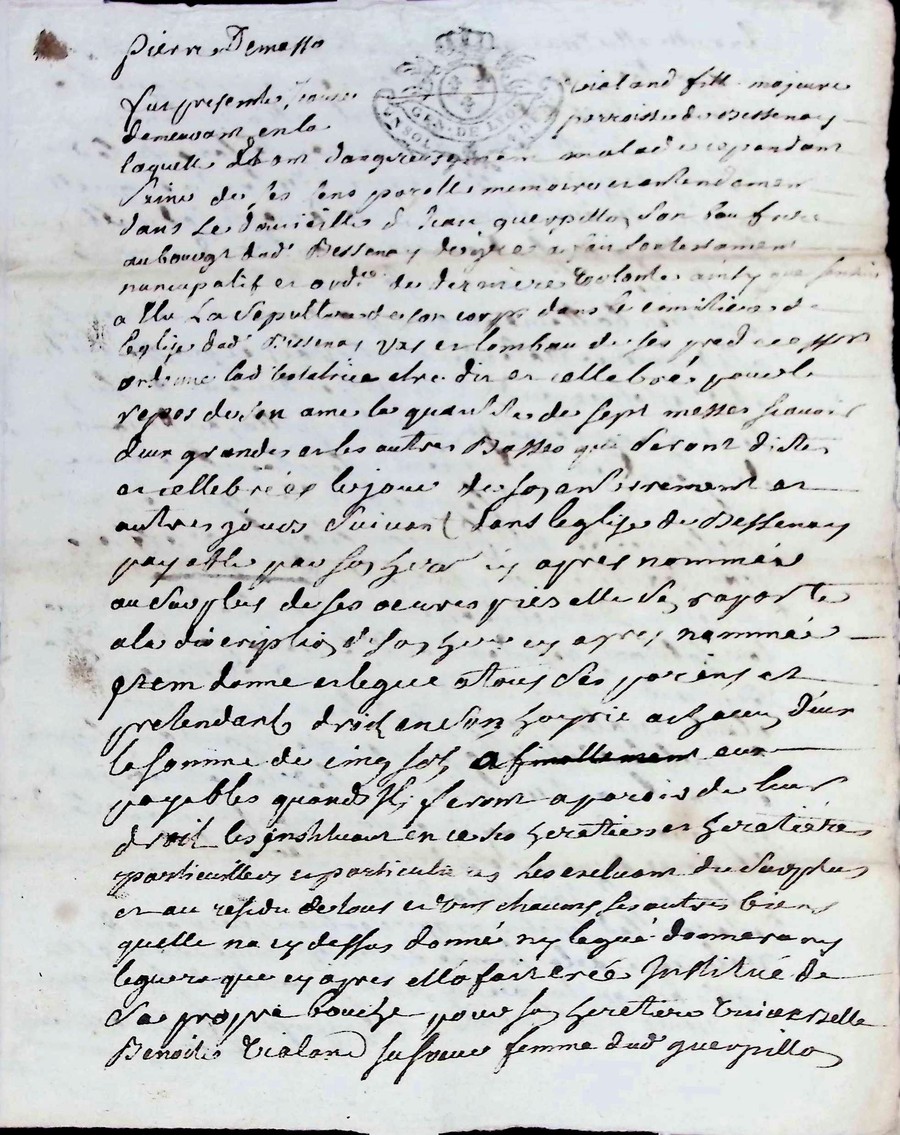 Pierre Demesso
GEN. DE LYON
Fut presente vialand fille majeure
demeurant en la perroisse de Bessenay
laquelle étant dangereusement malade cependant
saine de ses sens parolle memoire et entendement
dans le domicille d guerpillon son bau frere
au bourg dud. Bessenay desire a fair son testament
nuncupatif et ord.re de derniere volonte ainsy que
a Elu La Sepulture de son corps dans le cemitiere de
leglise dud. Bessenay vas et tombau de ses predecesseurs
ordonne lad. testatrice etre dit et cellebré pour le
repos de son ame la quantite de sept messes scavoir
deux grandes et les autres Basses qui seront dictes
et cellebrées le jour de son enterrement et
autres jours suivant dans leglise de Bessenay
payable par son here cy apres nommée
au surplus de ses oeuvres pies elle se raporte
a la discription de son here cy apres nommée
Item donne et legue a tous ses parens et
pretendants droit en son hoyrie a chacun d'eux
la somme de cinq sols
payables quand ils feront aparois de leur
droit les instituant en ce ses heretiers et heretieres
particulliers et particulieres les excluant du surplus
et au residu de tous et uns chacuns ses autres biens
quelle na cy dessus donné ny legué donnera ny
leguera que cy apres elle a fait crée Institué de
sa propre bouche pour son heretiere universelle
Benoite vialand sa soeur femme dud guerpillon